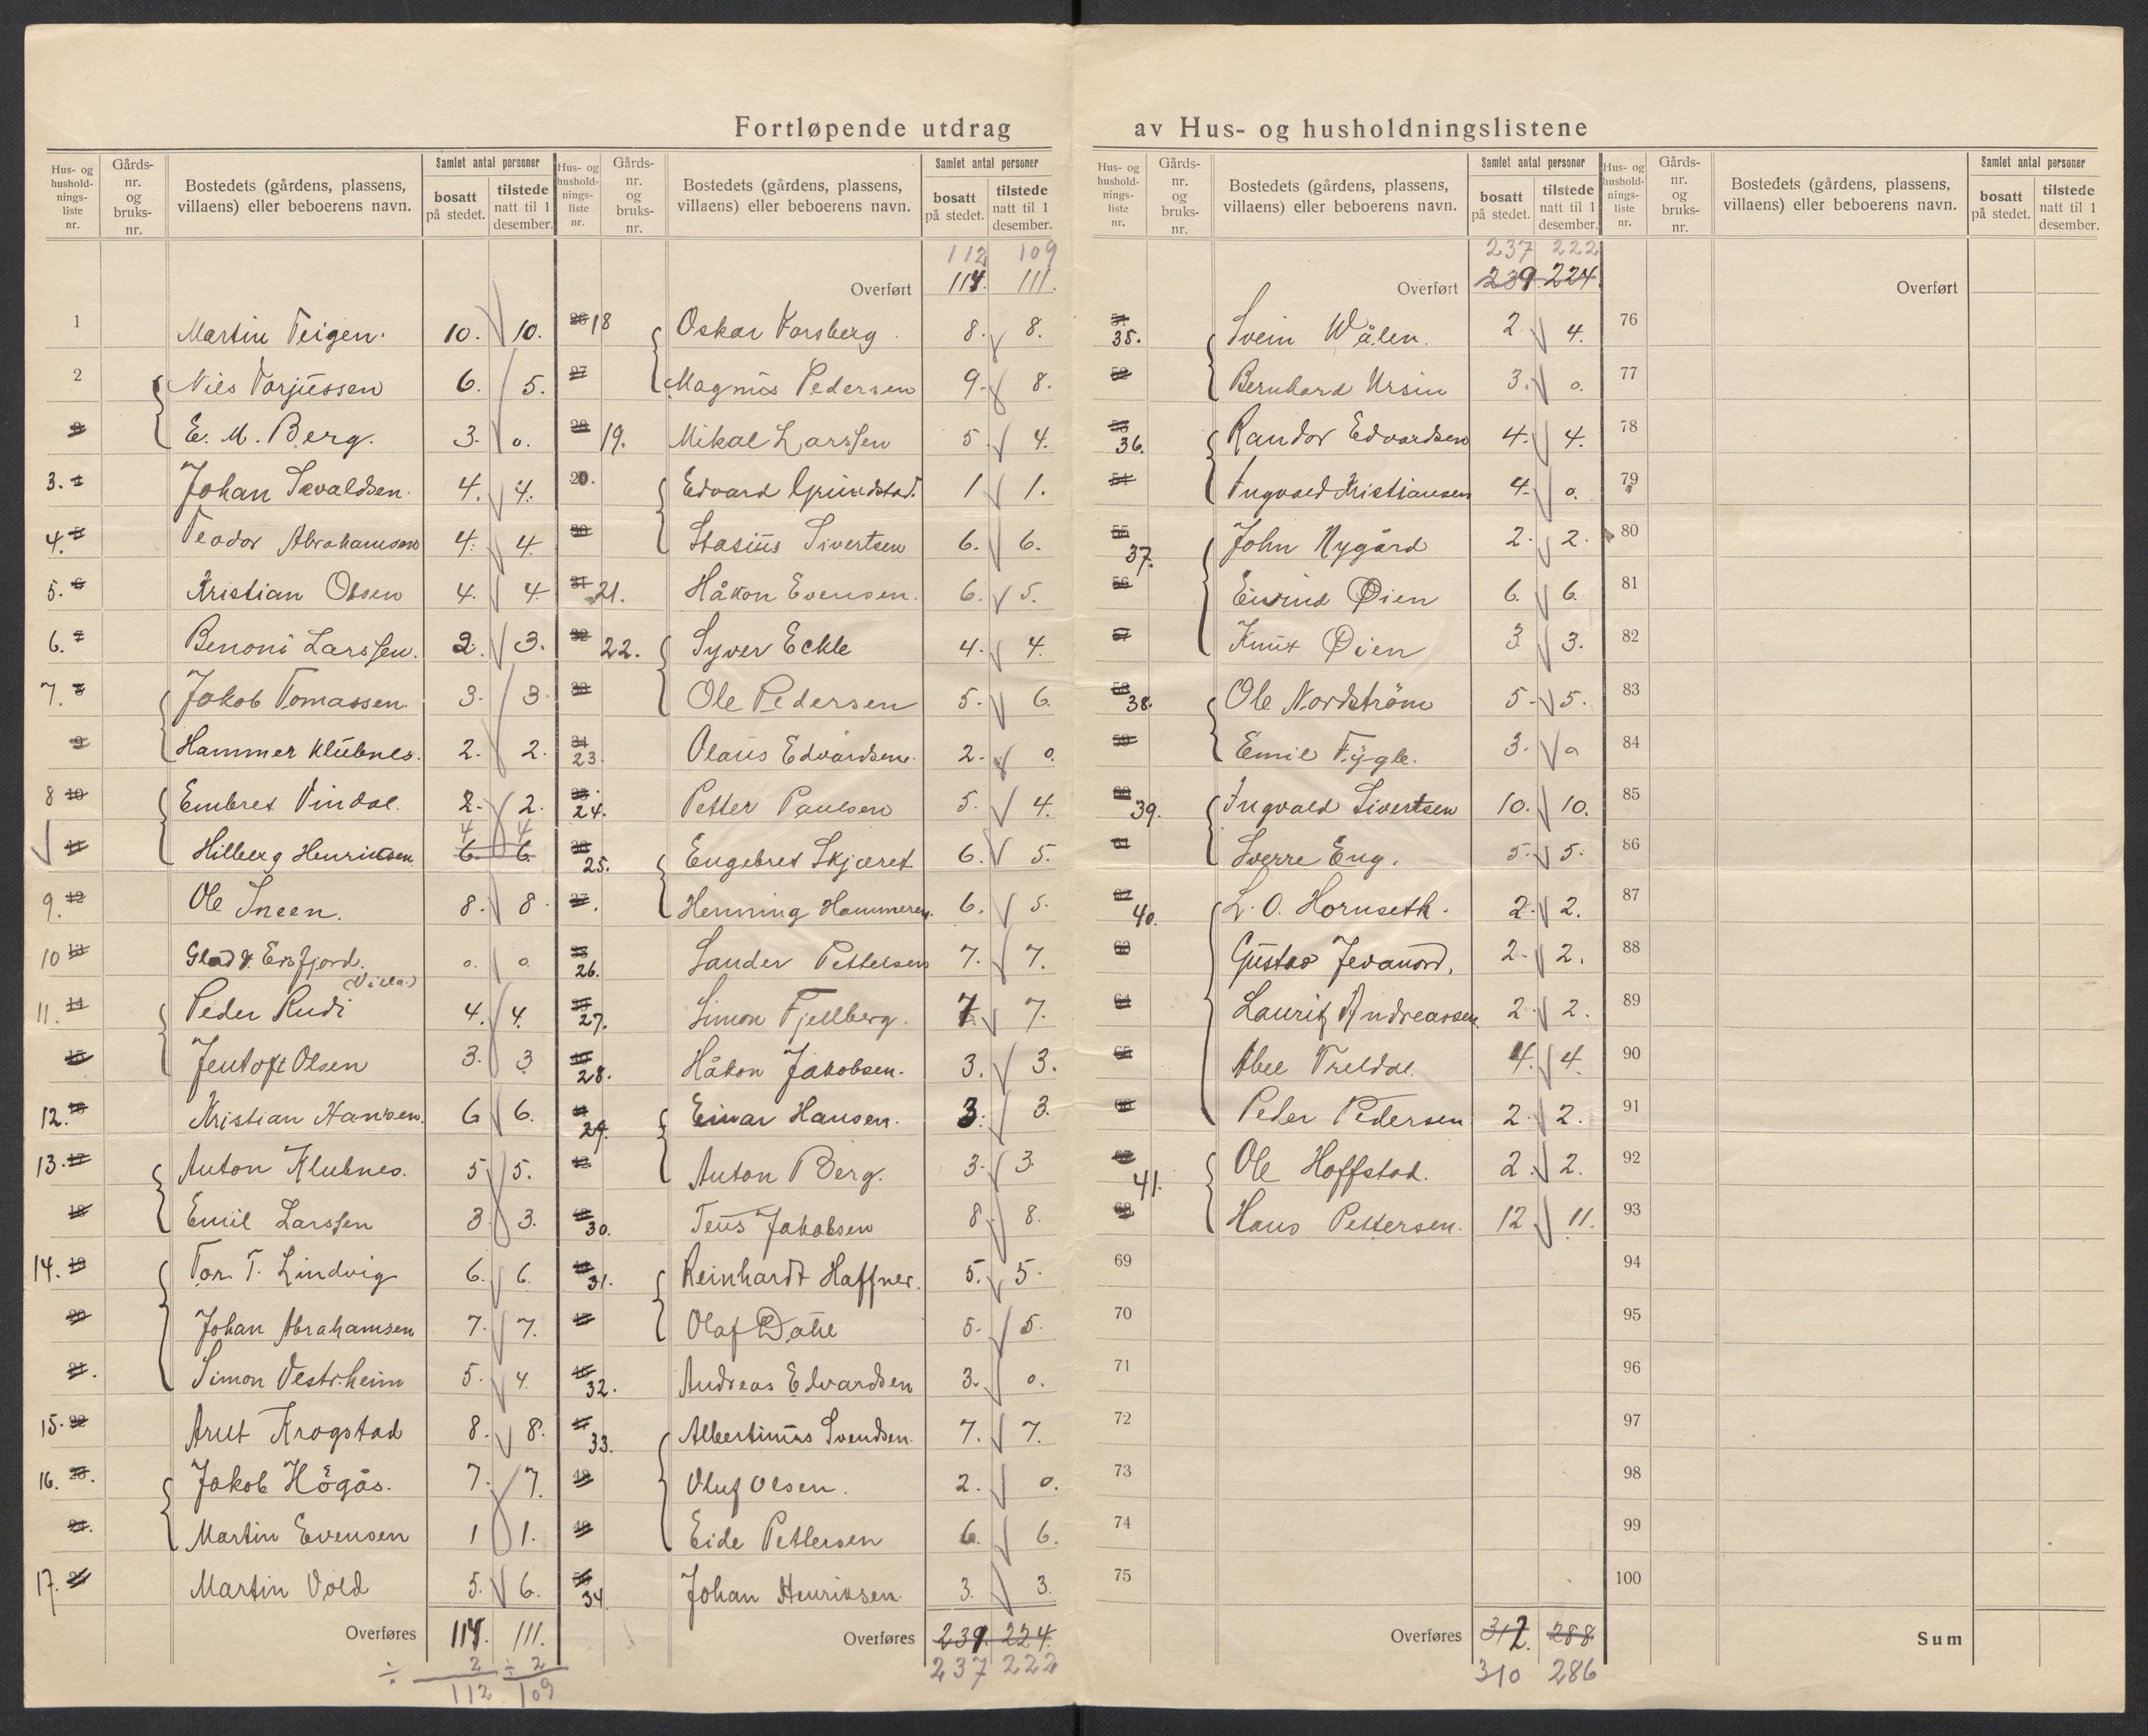 Fortløpende utdrag av Hus- og husholdningslistene
Hus- og hushold-nings-liste nr. Gårds-nr. og bruks-nr. Bostedets (gårdens, plassens, villaens) eller beboerens navn. Samlet antal personer bosatt på stedet. tilstede natt til 1 desember.
1 Martin Teigen. 10. 10.
2 Nils Torjussen 6. 5.
3 E. M. Berg. 3. 0.
3. 4 Johan Sevaldsen. 4. 4.
4. 5 Teodor Abrahamsen 4. 4.
5. 6 Kristian Olsen 4. 4
6. 7 Benoni Larssen. 2. 3.
7. 8 Jakob Tomassen. 3. 3.
9 Hammer Klubnes. 2. 2.
8 10 Embret Vindal. 2. 2.
4 4
11 Hilberg Henriksen 6. 6.
9. 12 Ole Sneen. 8. 8.
10 13 Glad & Ersfjord. (Villa) 0. 0.
11. 14 Peder Rudi 4. 4.
15 Jentoft Olsen 3. 3
12. 16 Kristian Hansen. 6 6.
13. 17 Anton Klubnes. 5 5.
18 Emil Larssen 3. 3.
14. 19 Tor. T. Lindvig 6. 6.
20 Johan Abrahamsen 7. 7.
21. Simon Vestrheim 5. 4.
15. 22 Arut Krogstad 8. 8.
16. 23. Jakob Högås. 7. 7.
24. Martin Evensen 1 1.
17. 25 Martin Vold 5. 6.
Overføres 114. 111.
÷ 2 ÷ 2
112 109
Hus- og hushold-nings-liste nr. Gårds-nr. og bruks-nr. Bostedets (gårdens, plassens, villaens) eller beboerens navn. Samlet antal personer bosatt på stedet. tilstede natt til 1 desember.
112 109
Overført 114. 111.
26 18 Oskar Forsberg. 8. 8.
27 Magnus Pedersen 9. 8.
28 19. Mikal Larssen 5. 4.
20. Edvard Grundstad. 1 1.
30 Stasius Sivertsen 6. 6.
31 21. Håkon Evensen. 6. 5.
32 22. Syver Eckle 4. 4.
33 Ole Pedersen 5. 6.
34 23. Olaus Edvardsen. 2. 0.
35 24. Petter Paulsen 5. 4.
36 25. Engebret Skjæret 6. 5.
37. Henning Hammeren. 6. 5.
38 26. Sander Pettersen 7. 7.
39 27. Simon Fjellberg. 7. 7.
40 28. Håkon Jakobsen. 3. 3.
41 29. Einar Hansen. 3. 3.
42 Anton Berg. 3. 3.
43 30. Teus Jakobsen 8. 8.
44 31. Reinhardt Haffner. 5. 5.
45 Olaf Dahl 5. 5.
46 32. Andreas Edvardsen 3. 0.
47 33. Albertinus Svendsen. 7. 7.
48 Oluf Olsen. 2. 0.
49 Eide Pettersen 6. 6.
50 34 Johan Henriksen. 3. 3.
Overføres 239. 224.
237 222
Hus- og hushold-nings-liste nr. Gårds-nr. og bruks-nr. Bostedets (gårdens, plassens, villaens) eller beboerens navn. Samlet antal personer bosatt på stedet. tilstede natt til 1 desember.
237 222
Overført 239 224.
51 35. Svein Wålen. 2. 4.
52 Bernhard Ursin 3. 0.
53 36. Randor Edvardsen 4. 4.
54 Ingvald Kristiansen 4. 0.
55 37. John Nygård 2. 2.
56 Eivind Øien 6. 6.
57 Knut Øien 3 3.
58 38. Ole Nordström 5. 5.
59 Emil Fygle. 3. 0
60 39. Ingvald Sivertsen 10. 10.
61 Sverre Eng. 5. 5.
62 40. L. O. Hornseth. 2. 2.
63 Gustav Jevanord. 2. 2.
64 Lauritz Andreassen 2. 2.
65 Abel Treldal. 4. 4.
66 Peder Pedersen. 2. 2.
67 41. Ole Hoffstad. 2. 2.
68 Hans Pettersen. 12 11.
69
70
71
72
73
74
75
Overføres 312. 288
310 286
Hus- og hushold-nings-liste nr. Gårds-nr. og bruks-nr. Bostedets (gårdens, plassens, villaens) eller beboerens navn. Samlet antal personer bosatt på stedet. tilstede natt til 1 desember.
Overført
76
77
78
79
80
81
82
83
84
85
86
87
88
89
90
91
92
93
94
95
96
97
98
99
100
Sum